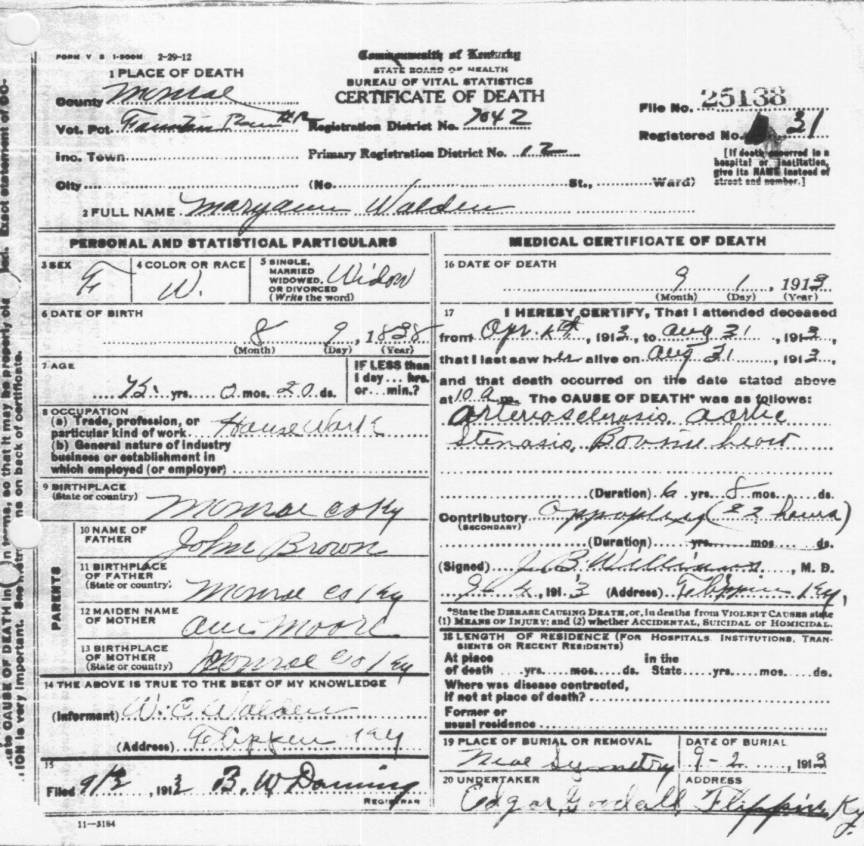 FORM V S 1-500M 2-29-12
Commonwealth of Kentucky
STATE BOARD OF HEALTH
BUREAU OF VITAL STATISTICS
CERTIFICATE OF DEATH
1 PLACE OF DEATH
County Monroe
Vot. Pct. Fountain Run
Inc. Town
City (No. St., Ward)
Registration District No. 7042
Primary Registration District No. 12
File No. 25138
Registered No. 31
[If death occurred in a
hospital or institution,
give its NAME instead of
street and number.]
2 FULL NAME Maryann Walden
PERSONAL AND STATISTICAL PARTICULARS
3 SEX F
4 COLOR OR RACE W.
5 SINGLE,
MARRIED
WIDOWED,
OR DIVORCED
(Write the word) Widow
6 DATE OF BIRTH
8 9 1838
(Month) (Day) (Year)
7 AGE
75 yrs. 0 mos. 20 ds.
IF LESS than
1 day... hrs.
or... min.?
8 OCCUPATION
(a) Trade, profession, or
particular kind of work House Work
(b) General nature of industry
business or establishment in
which employed (or employer)
9 BIRTHPLACE
(State or country) Monroe Co Ky
PARENTS
10 NAME OF
FATHER John Brown
11 BIRTHPLACE
OF FATHER
(State or country) Monroe Co Ky
12 MAIDEN NAME
OF MOTHER Moore
13 BIRTHPLACE
OF MOTHER
(State or country) Monroe Co Ky
14 THE ABOVE IS TRUE TO THE BEST OF MY KNOWLEDGE
(Informant) W. C. Walden
(Address) Flippin Ky
15
Filed 1913 B. W.
REGISTRAR
11-3184
MEDICAL CERTIFICATE OF DEATH
16 DATE OF DEATH
9 1, 1913
(Month) (Day) (Year)
17 I HEREBY CERTIFY, That I attended deceased
from Apr. , 1913, to Aug 31, 1913,
that I last saw her alive on Aug 31, 1913,
and that death occurred on the date stated above
at 10 m. The CAUSE OF DEATH* was as follows:
Arteriosclerosis, Aortic
Stenosis, Bovine heart
(Duration) 6 yrs. 8 mos. ds.
Contributory (22 hours)
(SECONDARY)
(Duration) yrs. mos. ds.
(Signed) J. B. Williams, M. D.
, 1913 (Address) Flippin Ky,
*State the DISEASE CAUSING DEATH, or, in deaths from VIOLENT CAUSES state
(1) MEANS OF INJURY; and (2) whether ACCIDENTAL, SUICIDAL or HOMICIDAL.
18 LENGTH OF RESIDENCE (FOR HOSPITALS INSTITUTIONS, TRAN-
SIENTS OR RECENT RESIDENTS)
At place in the
of death yrs. mos. ds. State yrs. mos. ds.
Where was disease contracted,
If not at place of death?
Former or
usual residence
19 PLACE OF BURIAL OR REMOVAL
DATE OF BURIAL
9-2, 1913
20 UNDERTAKER
ADDRESS
Edgar Goodall, Flippin, Ky.